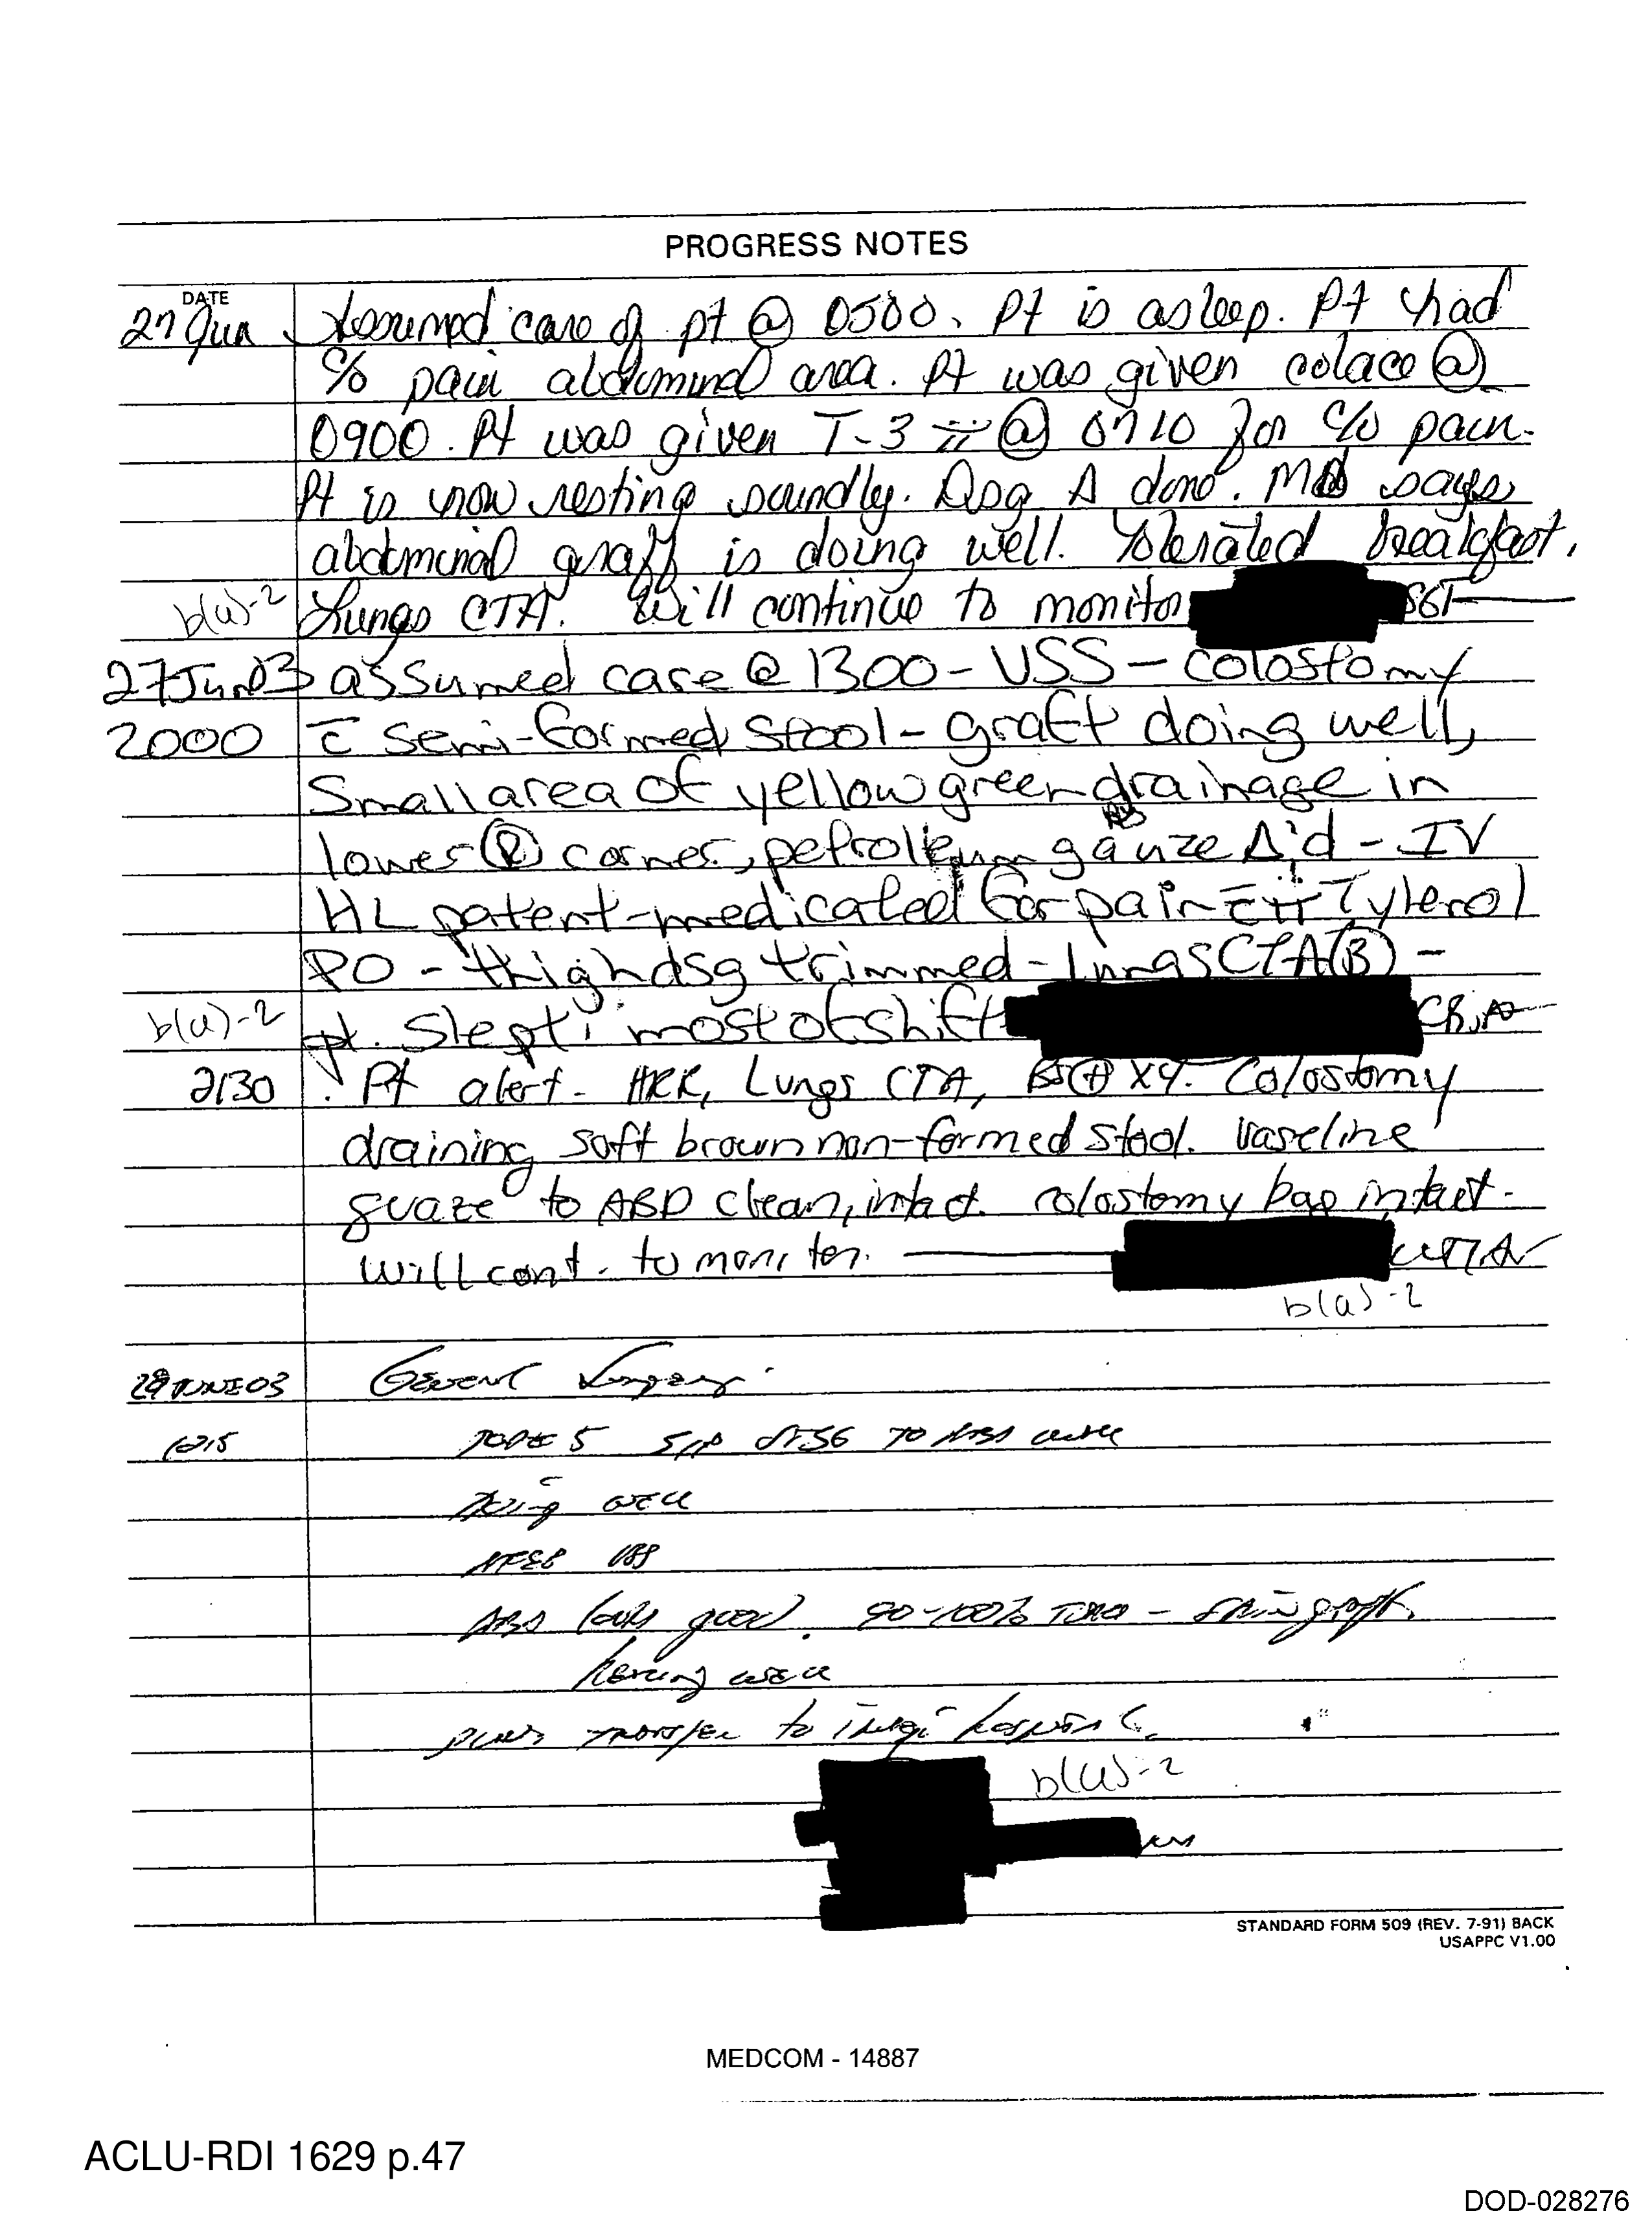 PROGRESS NOTES
DATE
27 Jun Assumed care of pt @ 0500. Pt is asleep. Pt had
c/o pain abdominal area. Pt was given colace @
0900. Pt was given T-3 ii @ 0710 for c/o pain.
Pt is now resting soundly. Dsg Δ done. MD says
abdominal graft is doing well. Tolerated breakfast.
b(6)-2 Lungs CTA. Will continue to monitor SGT
27Jun03 assumed care @ 1300 - VSS - colostomy
2000 c̄ semi-formed stool - graft doing well,
small area of yellow green drainage in
lower (R) corner, petroleum gauze Δ'd - IV
HL patent - medicated for pain c̄ ii Tylenol
PO - thigh dsg trimmed - lungs CTA (B) -
b(6)-2 pt. slept most of shift
2130 Pt alert - HRR, Lungs CTA, BS (+) x4. Colostomy
draining soft brown non-formed stool. Vaseline
guaze to ABD clean, intact. colostomy bag intact.
will cont. to monitor.
b(6)-2
29 JUNE 03 General Surgery
1215 5 s/p STSG to ABD
Doing well
AFEB VSS
ABD looks good. 90-100% - skin graft.
healing well
transfer to Iraqi hospital.
b(6)-2
STANDARD FORM 509 (REV. 7-91) BACK
USAPPC V1.00
MEDCOM - 14887
ACLU-RDI 1629 p.47
DOD-028276